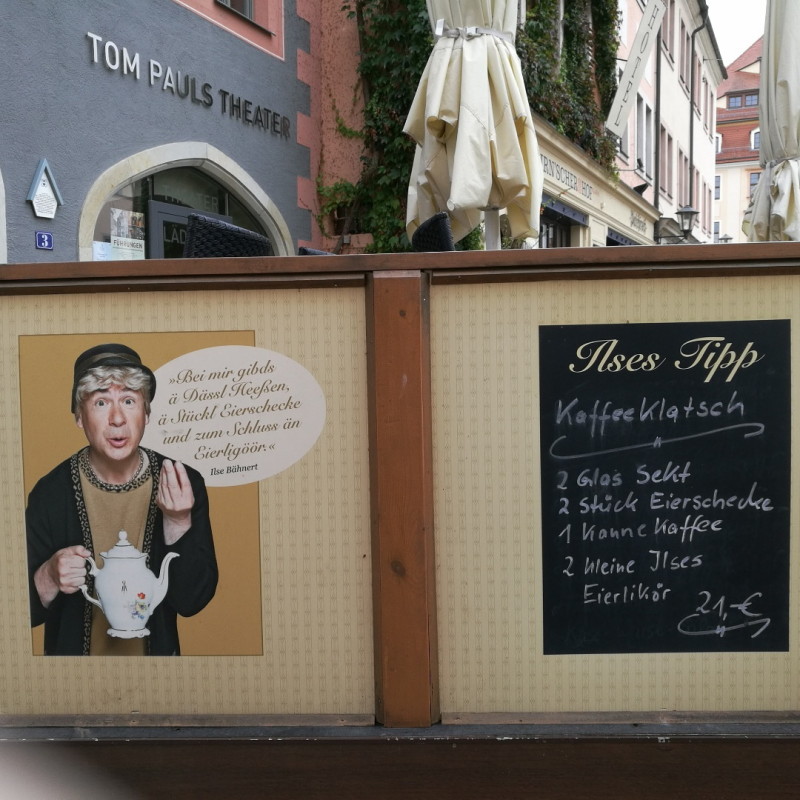 TOM PAULS THEATER
HOTEL
THEATER
LADE
FÜHRUNGEN
3
RN'SCHER HOF
»Bei mir gibds
ä Dässl Heeßen,
ä Stückl Eierschecke
und zum Schluss än
Eierligöör.«
Ilse Bähnert
Ilses Tipp
Kaffeeklatsch
2 Glas Sekt
2 Stück Eierschecke
1 Kanne Kaffee
2 kleine Ilses
Eierlikör
21,-€